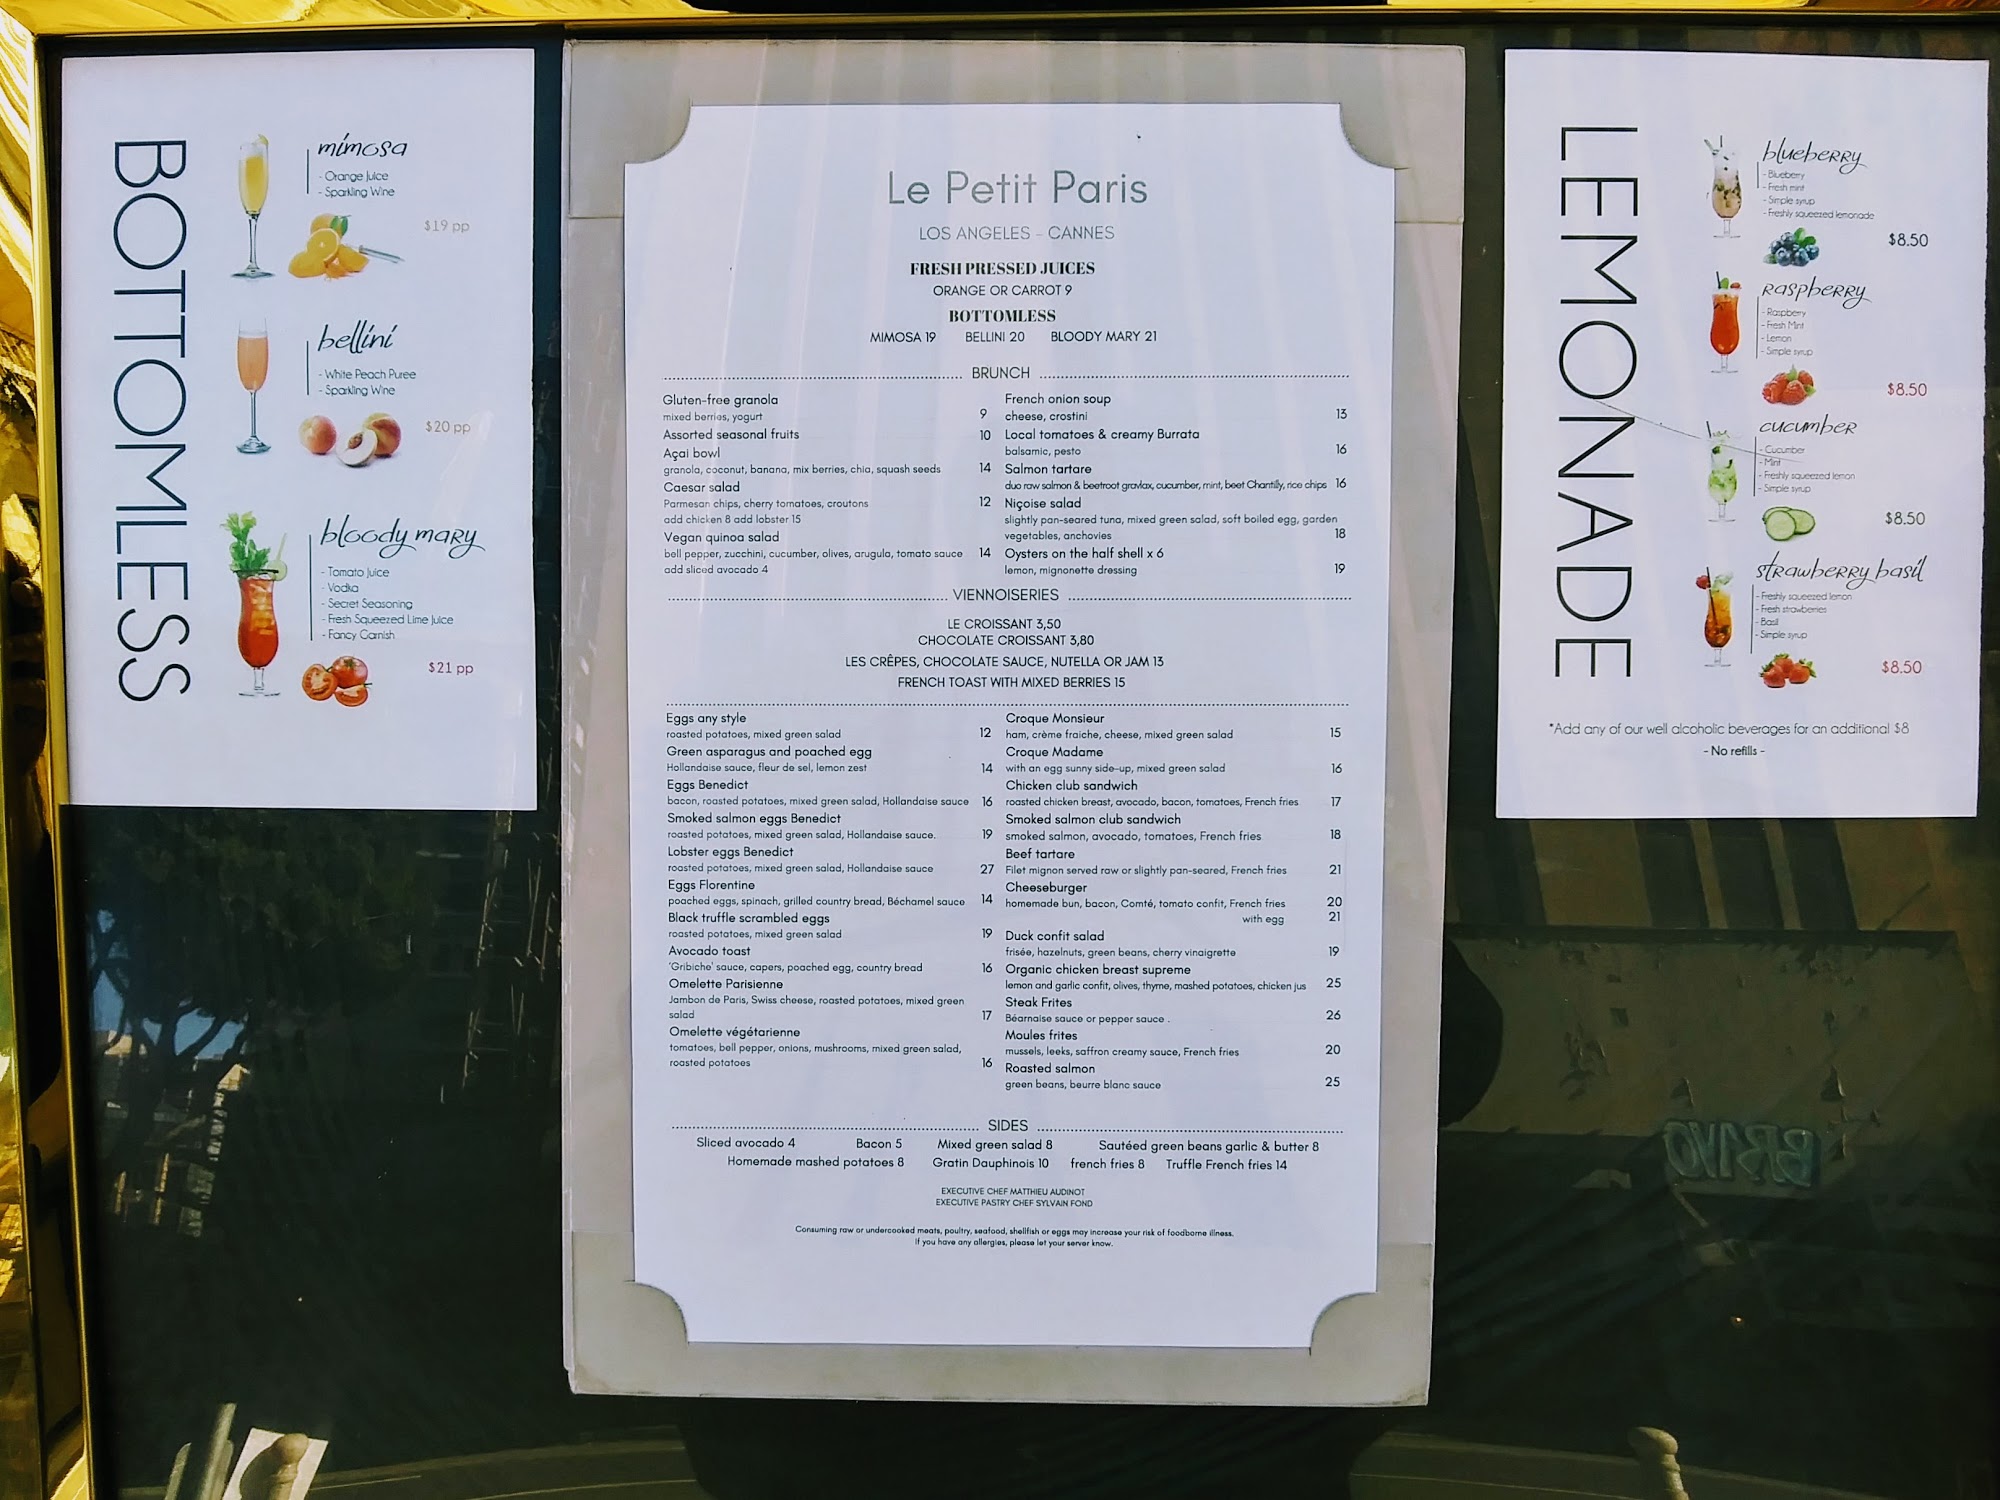 BOTTOMLESS
mimosa
- Orange Juice
- Sparkling Wine
$19 pp
bellini
- White Peach Puree
- Sparkling Wine
$20 pp
bloody mary
- Tomato Juice
- Vodka
- Secret Seasoning
- Fresh Squeezed Lime Juice
- Fancy Garnish
$21 pp
Le Petit Paris
LOS ANGELES - CANNES
FRESH PRESSED JUICES
ORANGE OR CARROT 9
BOTTOMLESS
MIMOSA 19 BELLINI 20 BLOODY MARY 21
BRUNCH
Gluten-free granola
mixed berries, yogurt 9
Assorted seasonal fruits 10
Açai bowl
granola, coconut, banana, mix berries, chia, squash seeds 14
Caesar salad
Parmesan chips, cherry tomatoes, croutons 12
add chicken 8 add lobster 15
Vegan quinoa salad
bell pepper, zucchini, cucumber, olives, arugula, tomato sauce 14
add sliced avocado 4
French onion soup
cheese, crostini 13
Local tomatoes & creamy Burrata
balsamic, pesto 16
Salmon tartare
duo raw salmon & beetroot gravlax, cucumber, mint, beet Chantilly, rice chips 16
Niçoise salad
slightly pan-seared tuna, mixed green salad, soft boiled egg, garden
vegetables, anchovies 18
Oysters on the half shell x 6
lemon, mignonette dressing 19
VIENNOISERIES
LE CROISSANT 3,50
CHOCOLATE CROISSANT 3,80
LES CRÊPES, CHOCOLATE SAUCE, NUTELLA OR JAM 13
FRENCH TOAST WITH MIXED BERRIES 15
Eggs any style
roasted potatoes, mixed green salad 12
Green asparagus and poached egg
Hollandaise sauce, fleur de sel, lemon zest 14
Eggs Benedict
bacon, roasted potatoes, mixed green salad, Hollandaise sauce 16
Smoked salmon eggs Benedict
roasted potatoes, mixed green salad, Hollandaise sauce. 19
Lobster eggs Benedict
roasted potatoes, mixed green salad, Hollandaise sauce 27
Eggs Florentine
poached eggs, spinach, grilled country bread, Béchamel sauce 14
Black truffle scrambled eggs
roasted potatoes, mixed green salad 19
Avocado toast
'Gribiche' sauce, capers, poached egg, country bread 16
Omelette Parisienne
Jambon de Paris, Swiss cheese, roasted potatoes, mixed green
salad 17
Omelette végétarienne
tomatoes, bell pepper, onions, mushrooms, mixed green salad,
roasted potatoes 16
Croque Monsieur
ham, crème fraiche, cheese, mixed green salad 15
Croque Madame
with an egg sunny side-up, mixed green salad 16
Chicken club sandwich
roasted chicken breast, avocado, bacon, tomatoes, French fries 17
Smoked salmon club sandwich
smoked salmon, avocado, tomatoes, French fries 18
Beef tartare
Filet mignon served raw or slightly pan-seared, French fries 21
Cheeseburger
homemade bun, bacon, Comté, tomato confit, French fries 20
with egg 21
Duck confit salad
frisée, hazelnuts, green beans, cherry vinaigrette 19
Organic chicken breast supreme
lemon and garlic confit, olives, thyme, mashed potatoes, chicken jus 25
Steak Frites
Béarnaise sauce or pepper sauce . 26
Moules frites
mussels, leeks, saffron creamy sauce, French fries 20
Roasted salmon
green beans, beurre blanc sauce 25
SIDES
Sliced avocado 4 Bacon 5 Mixed green salad 8 Sautéed green beans garlic & butter 8
Homemade mashed potatoes 8 Gratin Dauphinois 10 french fries 8 Truffle French fries 14
EXECUTIVE CHEF MATTHIEU AUDINOT
EXECUTIVE PASTRY CHEF SYLVAIN FOND
Consuming raw or undercooked meats, poultry, seafood, shellfish or eggs may increase your risk of foodborne illness.
If you have any allergies, please let your server know.
LEMONADE
blueberry
- Blueberry
- Fresh mint
- Simple syrup
- Freshly squeezed lemonade
$8.50
raspberry
- Raspberry
- Fresh Mint
- Lemon
- Simple syrup
$8.50
cucumber
- Cucumber
- Mint
- Freshly squeezed lemon
- Simple syrup
$8.50
strawberry basil
- Freshly squeezed lemon
- Fresh strawberries
- Basil
- Simple syrup
$8.50
*Add any of our well alcoholic beverages for an additional $8
- No refills -
BRAVO